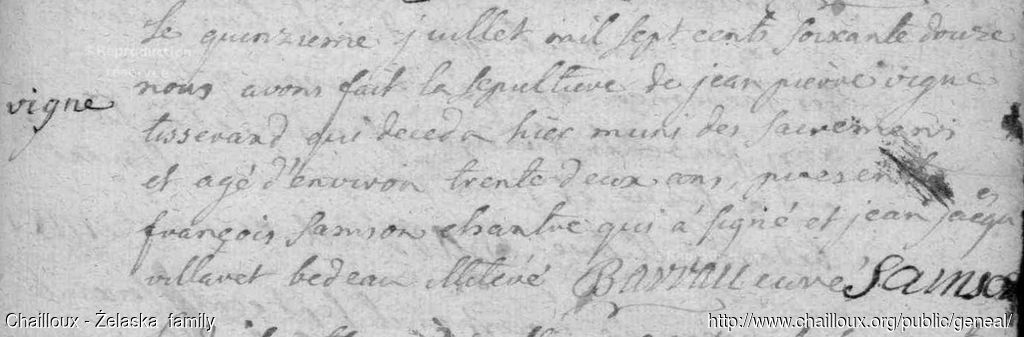 Le quinzieme juillet mil sept cents soixante douze
nous avons fait la sepulture de jean pierre vigne
vigne
tisserand qui deceda hier muni des sacremens
et agé d'environ trente deux ans, presents
françois samson chantre qui a signé et jean jacques
villaret bedeau illitéré Barrau curé Samson
Chailloux - Želaska family
http://www.chailloux.org/public/geneal/